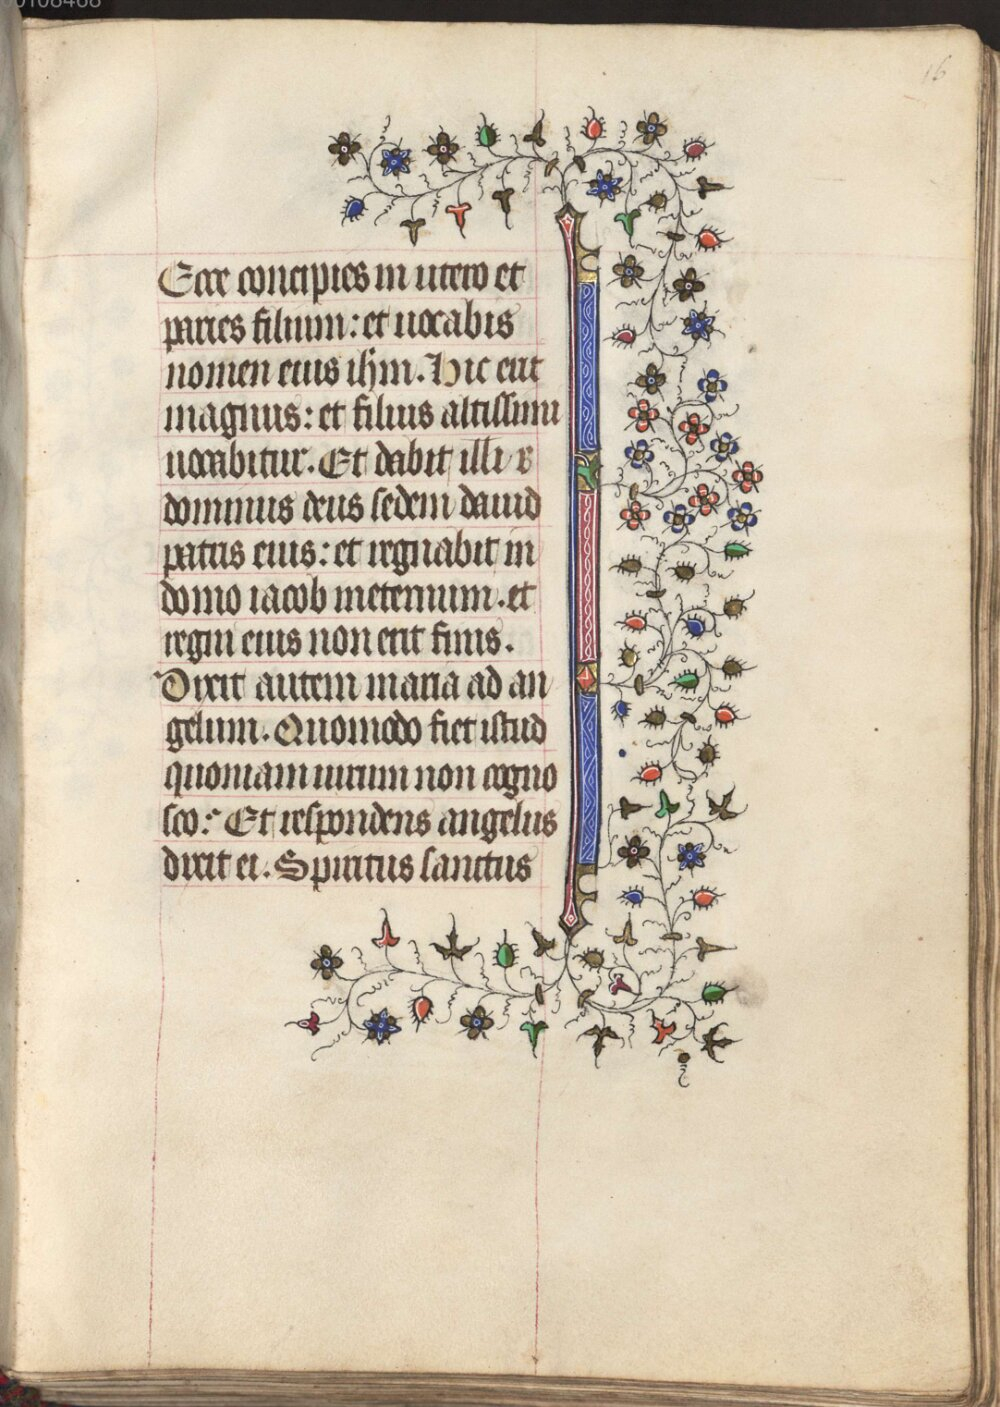 00108468
16
Ecce concipies in utero et
paries filium: et uocabis
nomen eius ihm. Hic erit
magnus: et filius altissimi
uocabitur. Et dabit illi
dominus deus sedem dauid
patris eius: et regnabit in
domo iacob ineternum. et
regni eius non erit finis.
Dixit autem maria ad an
gelum. Quomodo fiet istud
quoniam uirum non cogno
sco: Et respondens angelus
dixit ei. Spiritus sanctus